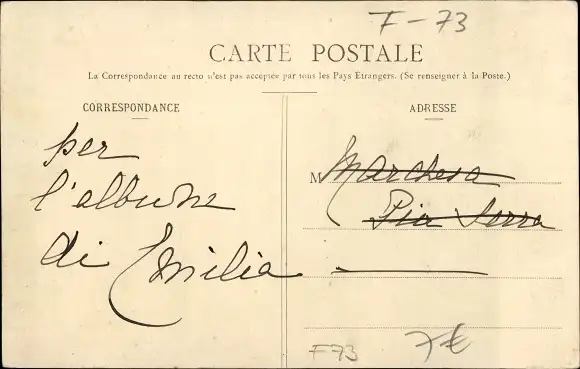 F-73
CARTE POSTALE
La Correspondance au recto n'est pas acceptée par tous les Pays Etrangers. (Se renseigner à la Poste.)
CORRESPONDANCE
per
l'album
di Emilia
ADRESSE
M Marchesa
Pia Serra
F73
7€